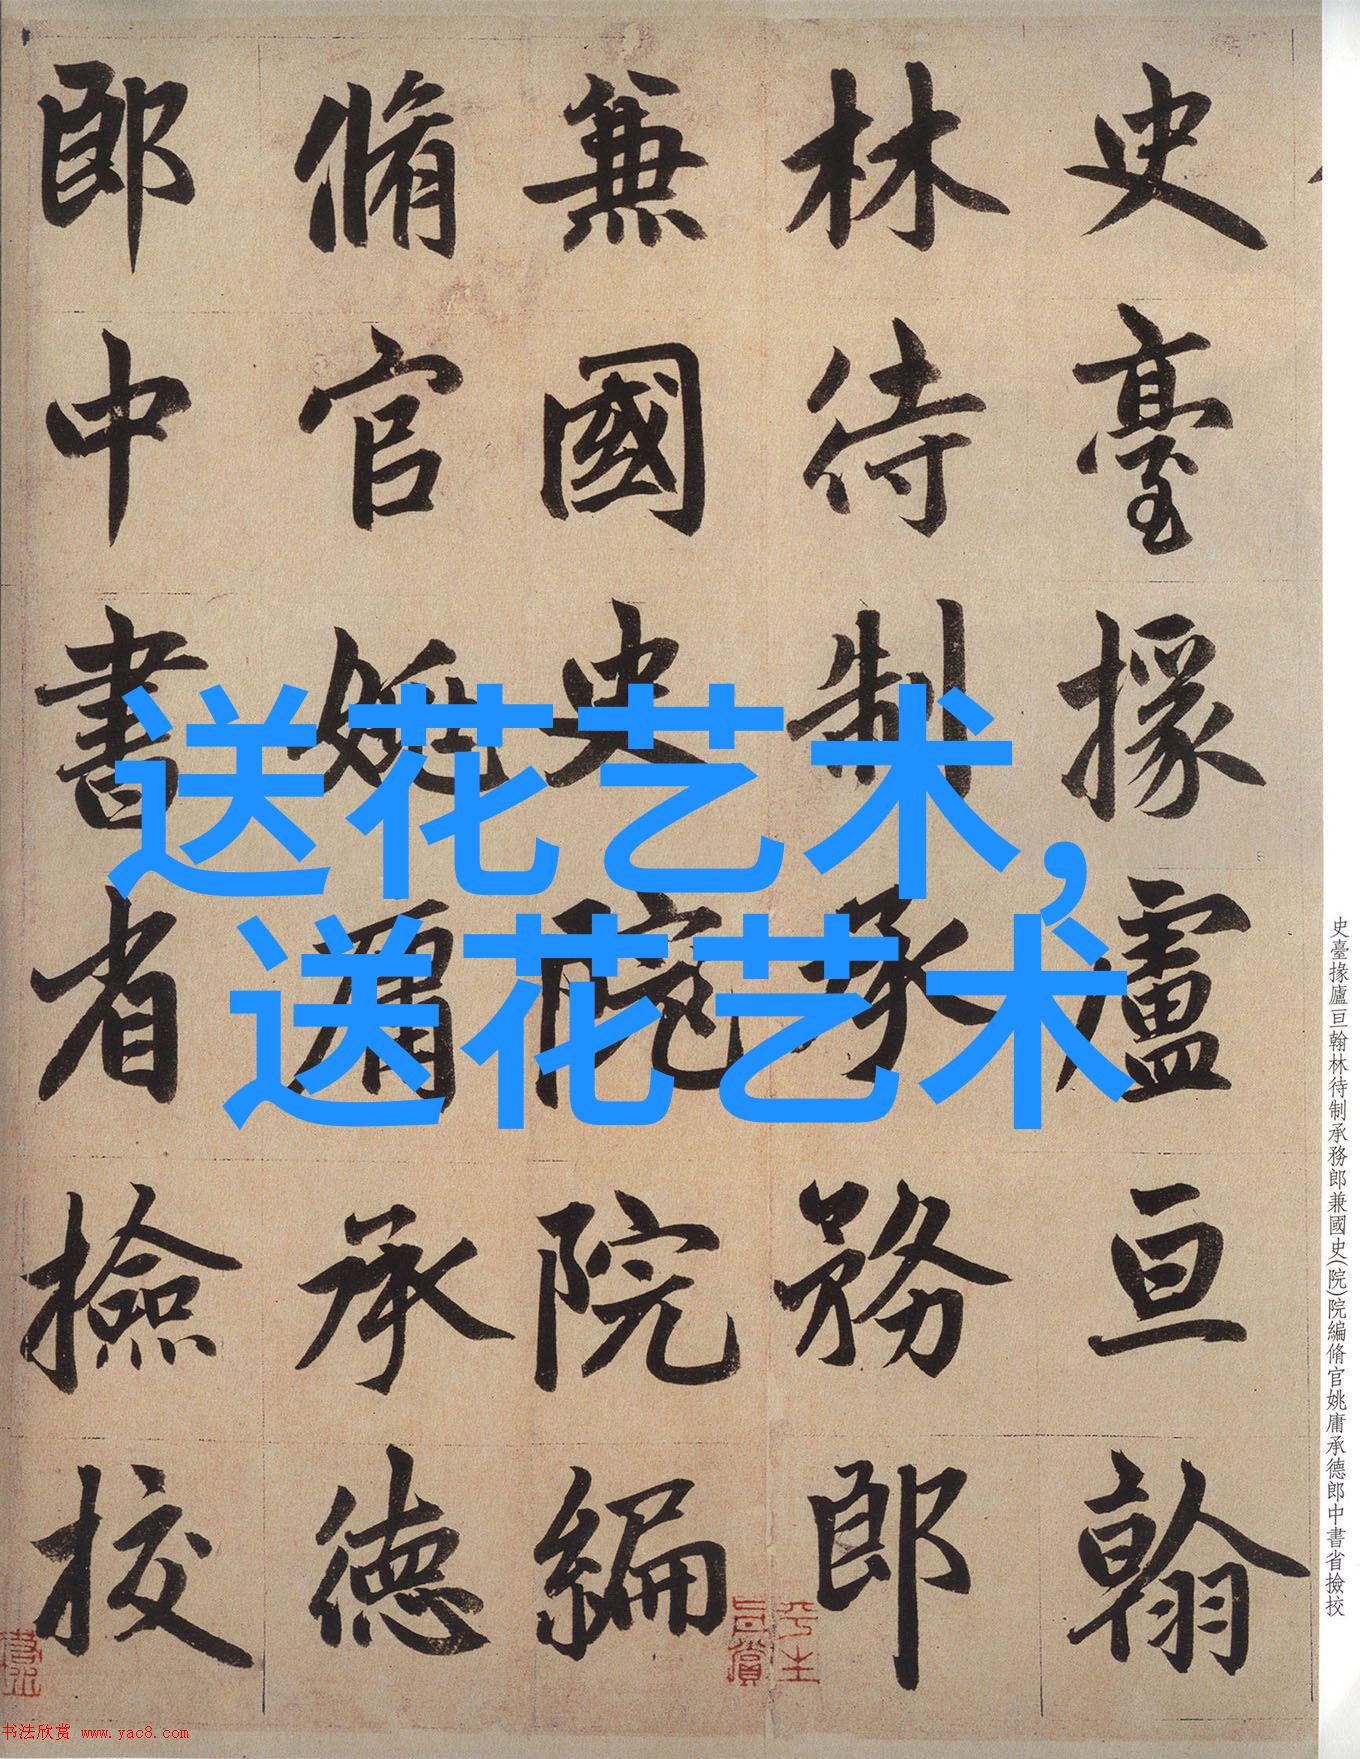 送花艺术,
送花艺术
史臺掾盧亘翰
林待制承務郎
兼國史院院編
脩官姚庸承德
郎中書省撿挍
史臺掾廬亘翰林待制承務郎兼國史(院)院編脩官姚庸承德郎中書省撿挍
书法欣赏 www.yac8.com